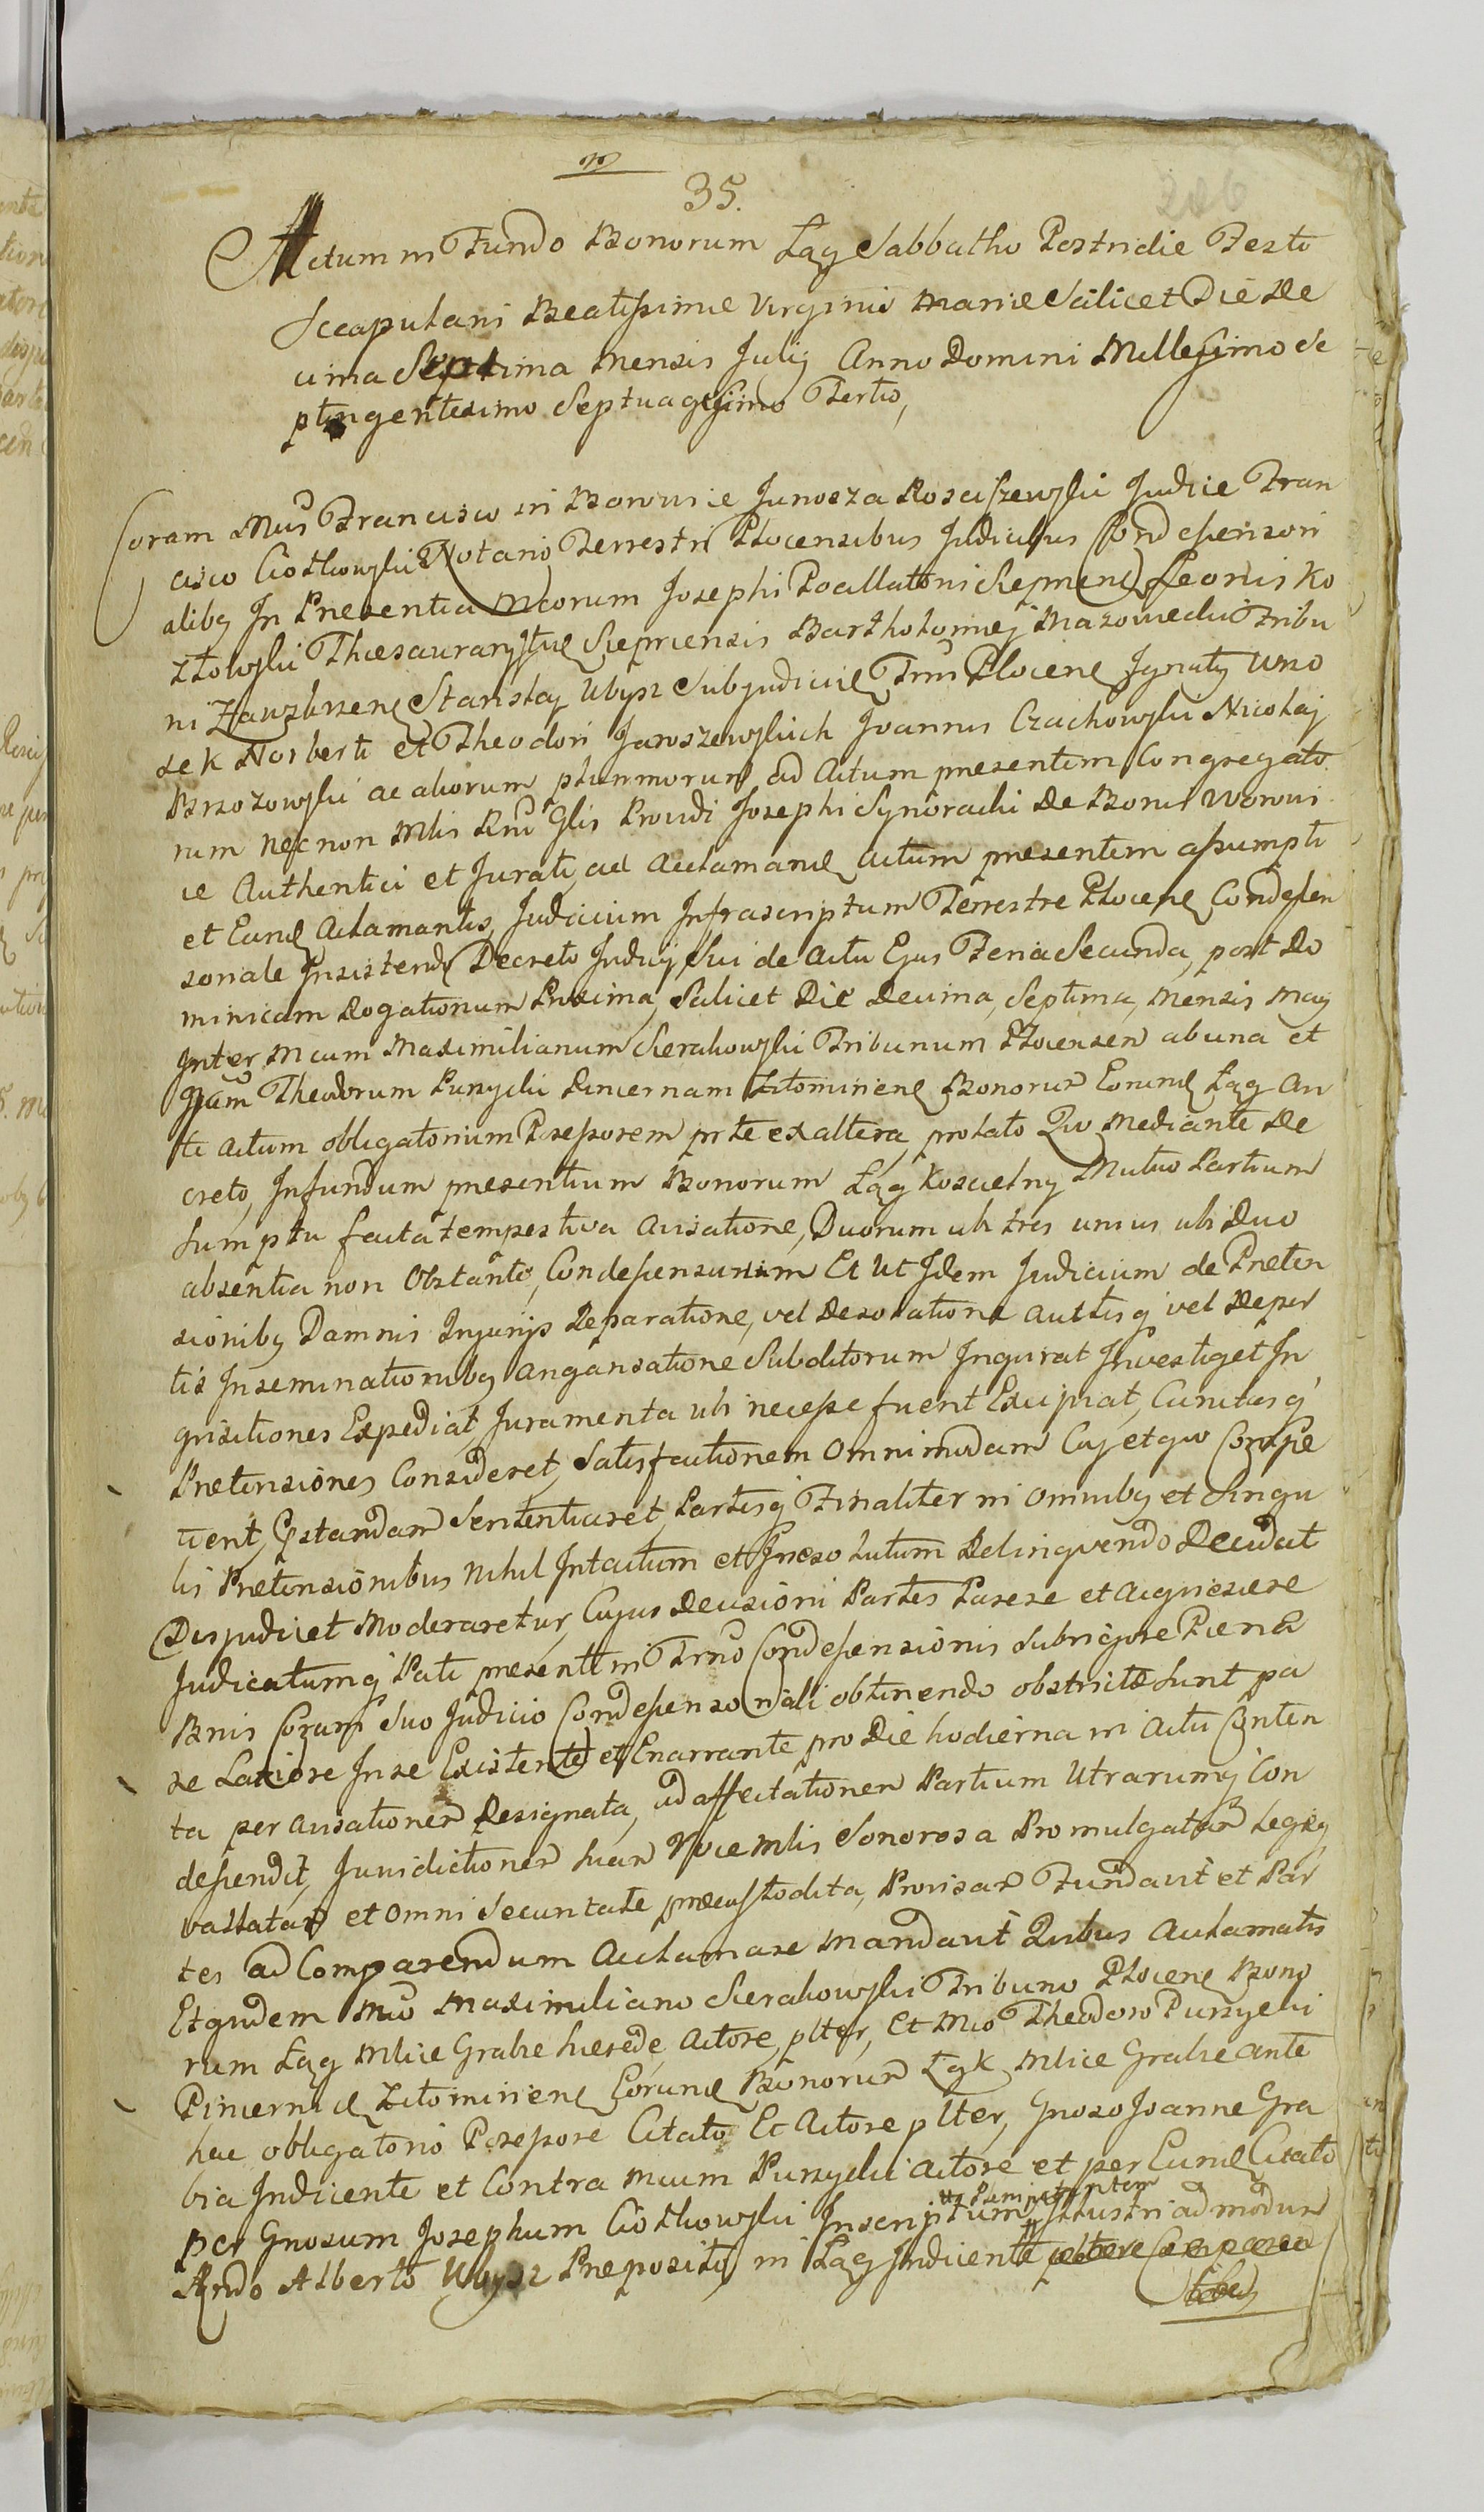 35.
206
Actum in Fundo Bonorum Łąg Sabbatho Postridie Festi
Scapulari Beatissimæ Virginis Mariæ Scilicet Die De
cima Septima Mensis Julij Anno Domini Millesimo Se
ptingentesimo Septuagesimo Tertio,
Coram Mcis Francisco in Borowice Junosza Rosciszewski Judice Fran
cisco Ciółkowski Notario Terrestri Plocensibus Judicibus Condescensori
alibq In Presentia Mcorum Josephi Podlatoni Sieprcens Leonis Ko
złowski Thesaurarij Sieprcensis Bartholomæj Mazowiecki Tribu
ni Zawskrzens Stanislaj Ubysz Subjudicis Trris Plocens Ignatij Uzio
sek Norberti et Theodori Jaroszewskich Joannis Czachowski Nicolaj
Brzozowski ac aliorum plurimorum ad Actum presentem Congregato
rum necnon Mlis Rni Glis Providi Josephi Synoracki De Bonis Worowi
ce Authentici et Jurati, ad Acclamand Actum presentem assumpti
et Eund Aclamantis, Judicium Infrascriptum Terrestre Plocens Condescen
soriale Insistendo Decreto Judicij Sui de Actu Ejus Feria Secunda, post Do
minicam Rogationum Proxima, Scilicet Die Decima, Septima, Mensis Maij
Inter Mcum Maximilianum Sierakowski Tribunum Plocensem ab una et
Gsum Theodorum Purzycki Pincernam Zytomiriens Bonorum Eorund Łąg An
te Actum obligatorium Possessorem prte ex altera, prolato Quo Mediante De
creto, In fundum presentium Bonorum Łąg Koscielny Mutuo Partium
Sumptu facta tempestiva Avisatione, Duorum ubi tres unius ubi Duo
absentia non Obstante, Condescensurum Et ut Idem Judicium de Preten
sionibq Damnis Injurijs Reparatione, vel Desolatione auctisq vel Deper
tis Inseminationibq angarisatione Subditorum Inquirat Investiget In
quisitiones Expediat, Juramenta ubi necesse fuerit Excipiat, Cunctasq
Pretensiones Consideret, Satisfactionem Omnimodam Cuj et quo Compe
tierit, Prstandam Sententiaret, Partesq Finaliter in omnibq et Singu
lis Pretensionibus Nihil Intactum et Irresolutum Relinquendo Decidat
Disjudicet Moderaretur, Cujus Decisioni Partes Parere et acquiescere
Judicatumq Pati presenti in Trno Condescensionis Sub rigore Pœna
Bnis Coram Suo Judicio Condescensoriali obtinendo obstrictæ Sunt pa
se Latiore In se Existente et Enarrante pro Die hodierna in Actu Conten
ta per avisationem Designata, ad affectationem Partium Utrarumq Con
descendit, Jurisdictionem suam Voce Mlis Sonorosa Promulgatam Legibq
vallatam et omni Securitate præcustodita, Provisam Fundavit et Par
tes ad Comparendum Acclamare Mandavit Quibus Aclamatis
Et quidem Mco Maximiliano Sierakowski Tribuno Plocens Bono
rum Łąg Mlice Grabie hærede, Actore, plter, Et Mco Theodoro Purzycki
Pincerna Zytomiriens Eorund Bonorum Łąg Mlice Grabie ante
hac obligatorio Possessore Citato Et Actore plter, Gnoso Joanne Gra
bia Indicente et Contra Mcum Purzycki Actore et per Eund Citato
per Gnosum Josephum Ciółkowski Inscriptum, Illustri admodum
Rndo Alberto Ubysz Preposito in Łąg Indicente